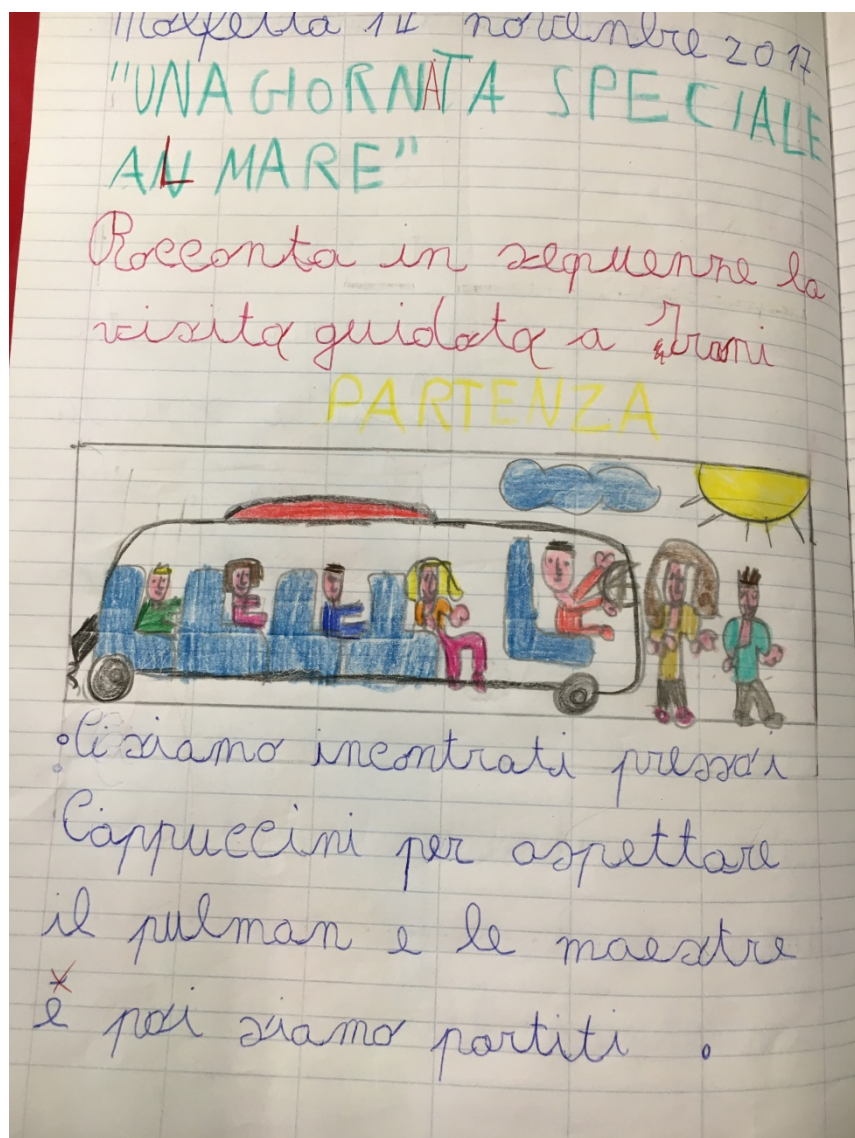 Molfetta 14 novembre 2017
"UNA GIORNATA SPECIALE
AL MARE"
Racconta in sequenze la
visita guidata a Trani
PARTENZA
Ci siamo incontrati presso i
Cappuccini per aspettare
il pulman e le maestre
e poi siamo partiti.